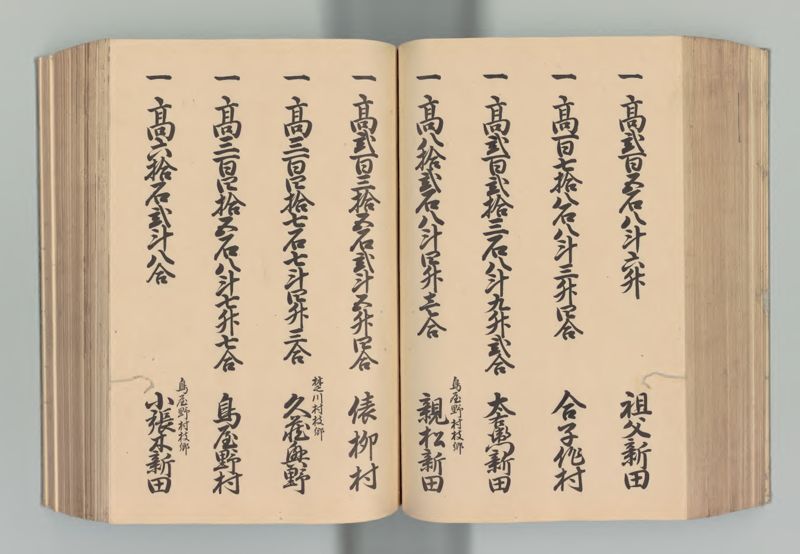 一 高弐百五石八斗六升
祖父新田
一 高百七拾八石八斗三升四合
合子作村
一 高弐百弐拾三石八斗九升弐合
太右衛門新田
一 高八拾弐石八斗四升壱合
鳥屋野村枝郷
親松新田
一 高弐百三拾五石弐斗五升四合
俵柳村
一 高三百四拾七石七斗四升三合
楚川村枝郷
久蔵興野
一 高三百四拾五石八斗七升七合
鳥屋野村
一 高六拾石弐斗八合
鳥屋野村枝郷
小張木新田